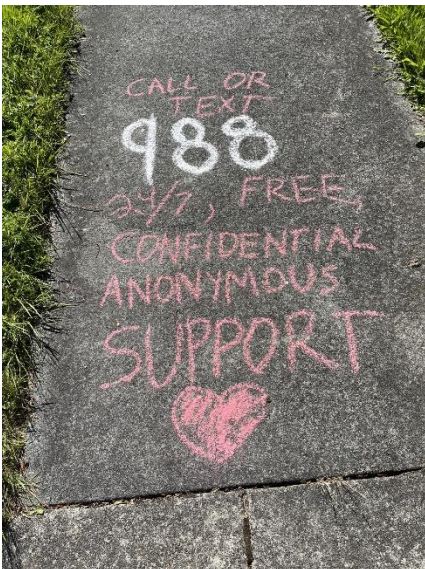 CALL OR
TEXT
988
24/7, FREE,
CONFIDENTIAL
ANONYMOUS
SUPPORT